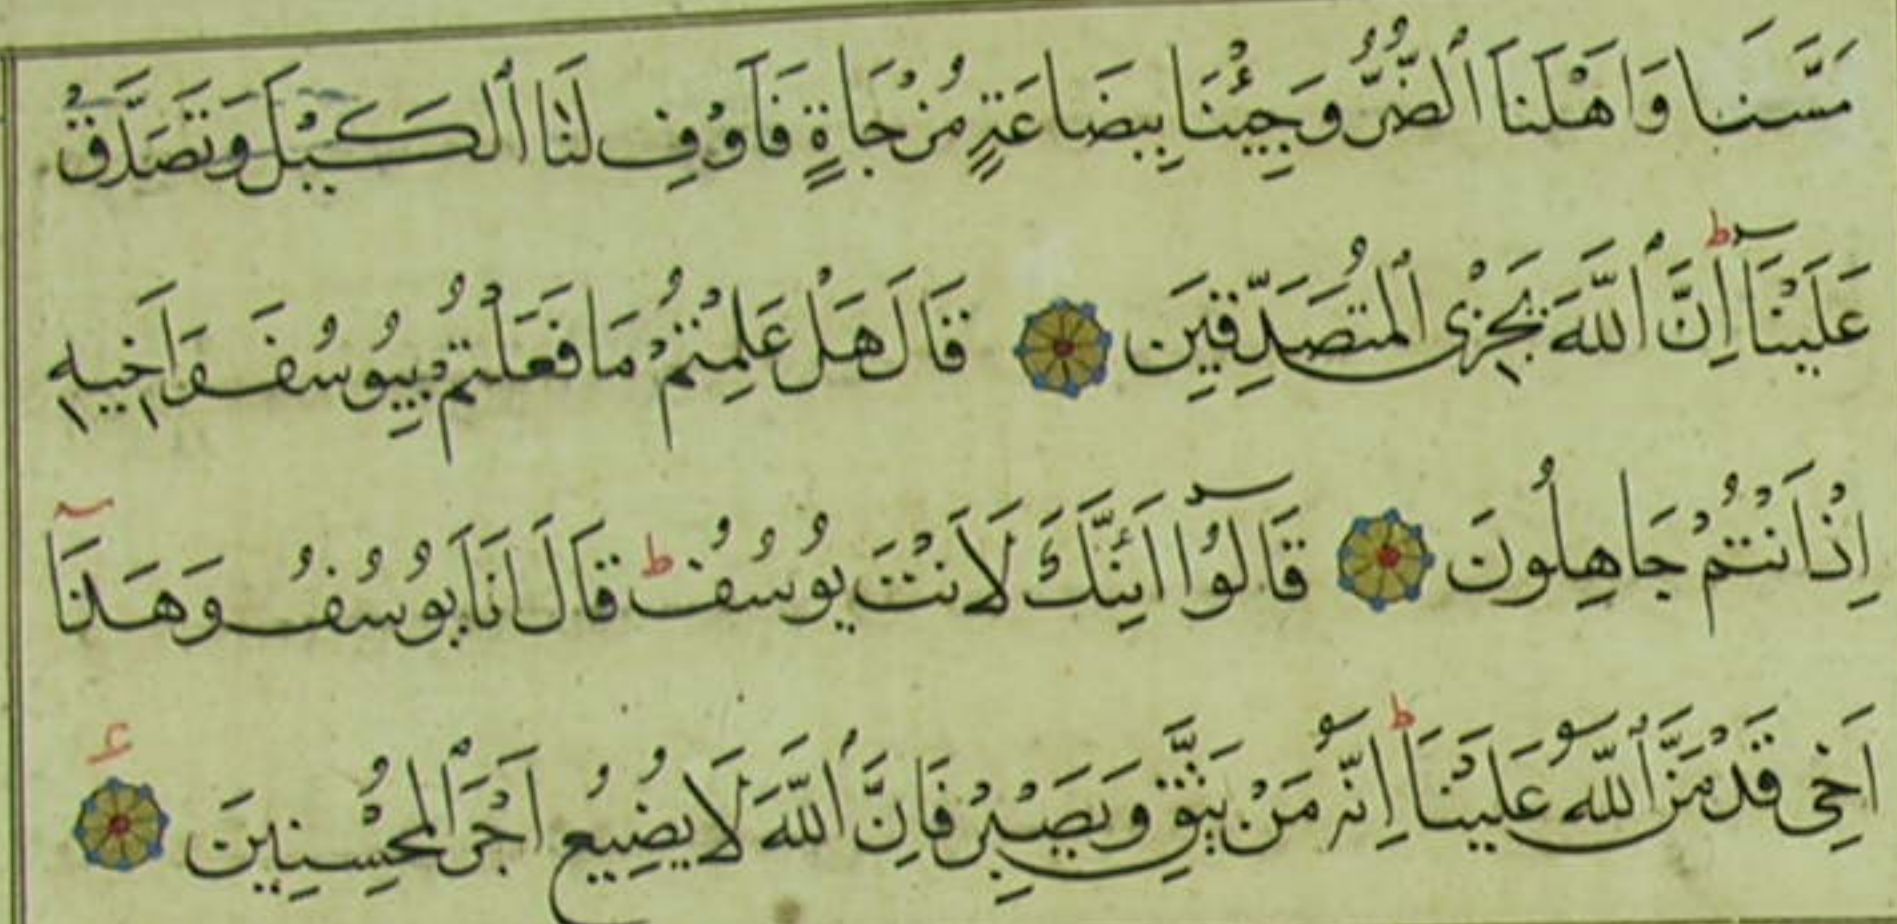 مَسَّنَا وَاَهْلَنَا ٱلضُّرُّ وَجِئْنَا بِبِضَاعَةٍ مُزْجَاةٍ فَاَوْفِ لَنَا ٱلْكَيْلَ وَتَصَدَّقْ
عَلَيْنَآ ط اِنَّ ٱللّٰهَ يَجْزِى ٱلْمُتَصَدِّقِينَ قَالَ هَلْ عَلِمْتُمْ مَا فَعَلْتُمْ بِيُوسُفَ وَاَخِيهِ
اِذْ اَنْتُمْ جَاهِلُونَ قَالُوٓا اَئِنَّكَ لَاَنْتَ يُوسُفُ ط قَالَ اَنَا۬ يُوسُفُ وَهٰذَآ
اَخِى قَدْ مَنَّ ٱللّٰهُ عَلَيْنَا ط اِنَّهُ مَنْ يَتَّقِ وَيَصْبِرْ فَاِنَّ ٱللّٰهَ لَا يُضِيعُ اَجْرَ ٱلْمُحْسِنِينَ